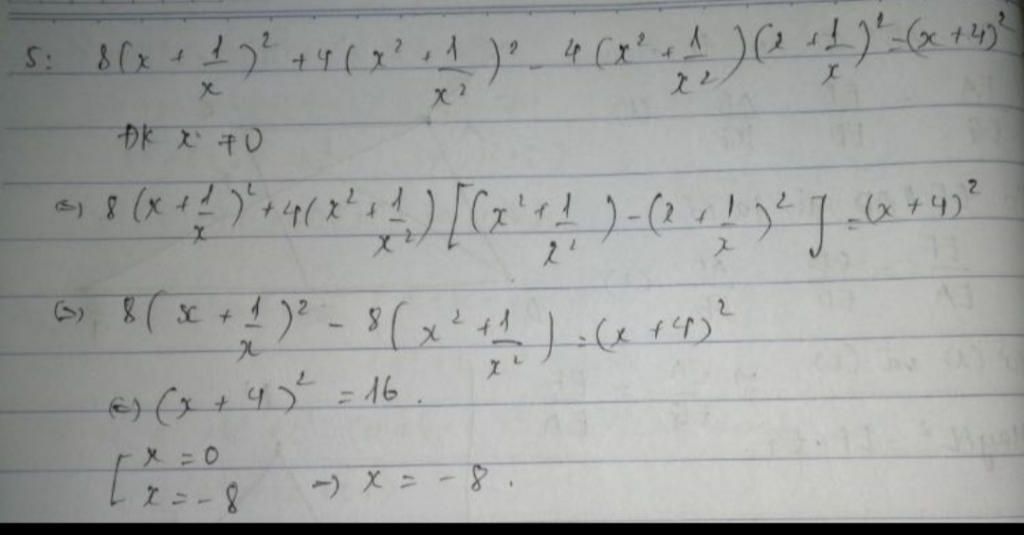 5: 8(x + 1/x)² + 4(x² + 1/x²)² - 4(x² + 1/x²)(x + 1/x)² = (x + 4)²
ĐK x ≠ 0
(=) 8(x + 1/x)² + 4(x² + 1/x²)[(x² + 1/x²) - (x + 1/x)²] = (x + 4)²
(=) 8(x + 1/x)² - 8(x² + 1/x²) = (x + 4)²
(=) (x + 4)² = 16.
[ x = 0
x = -8 -) x = -8.